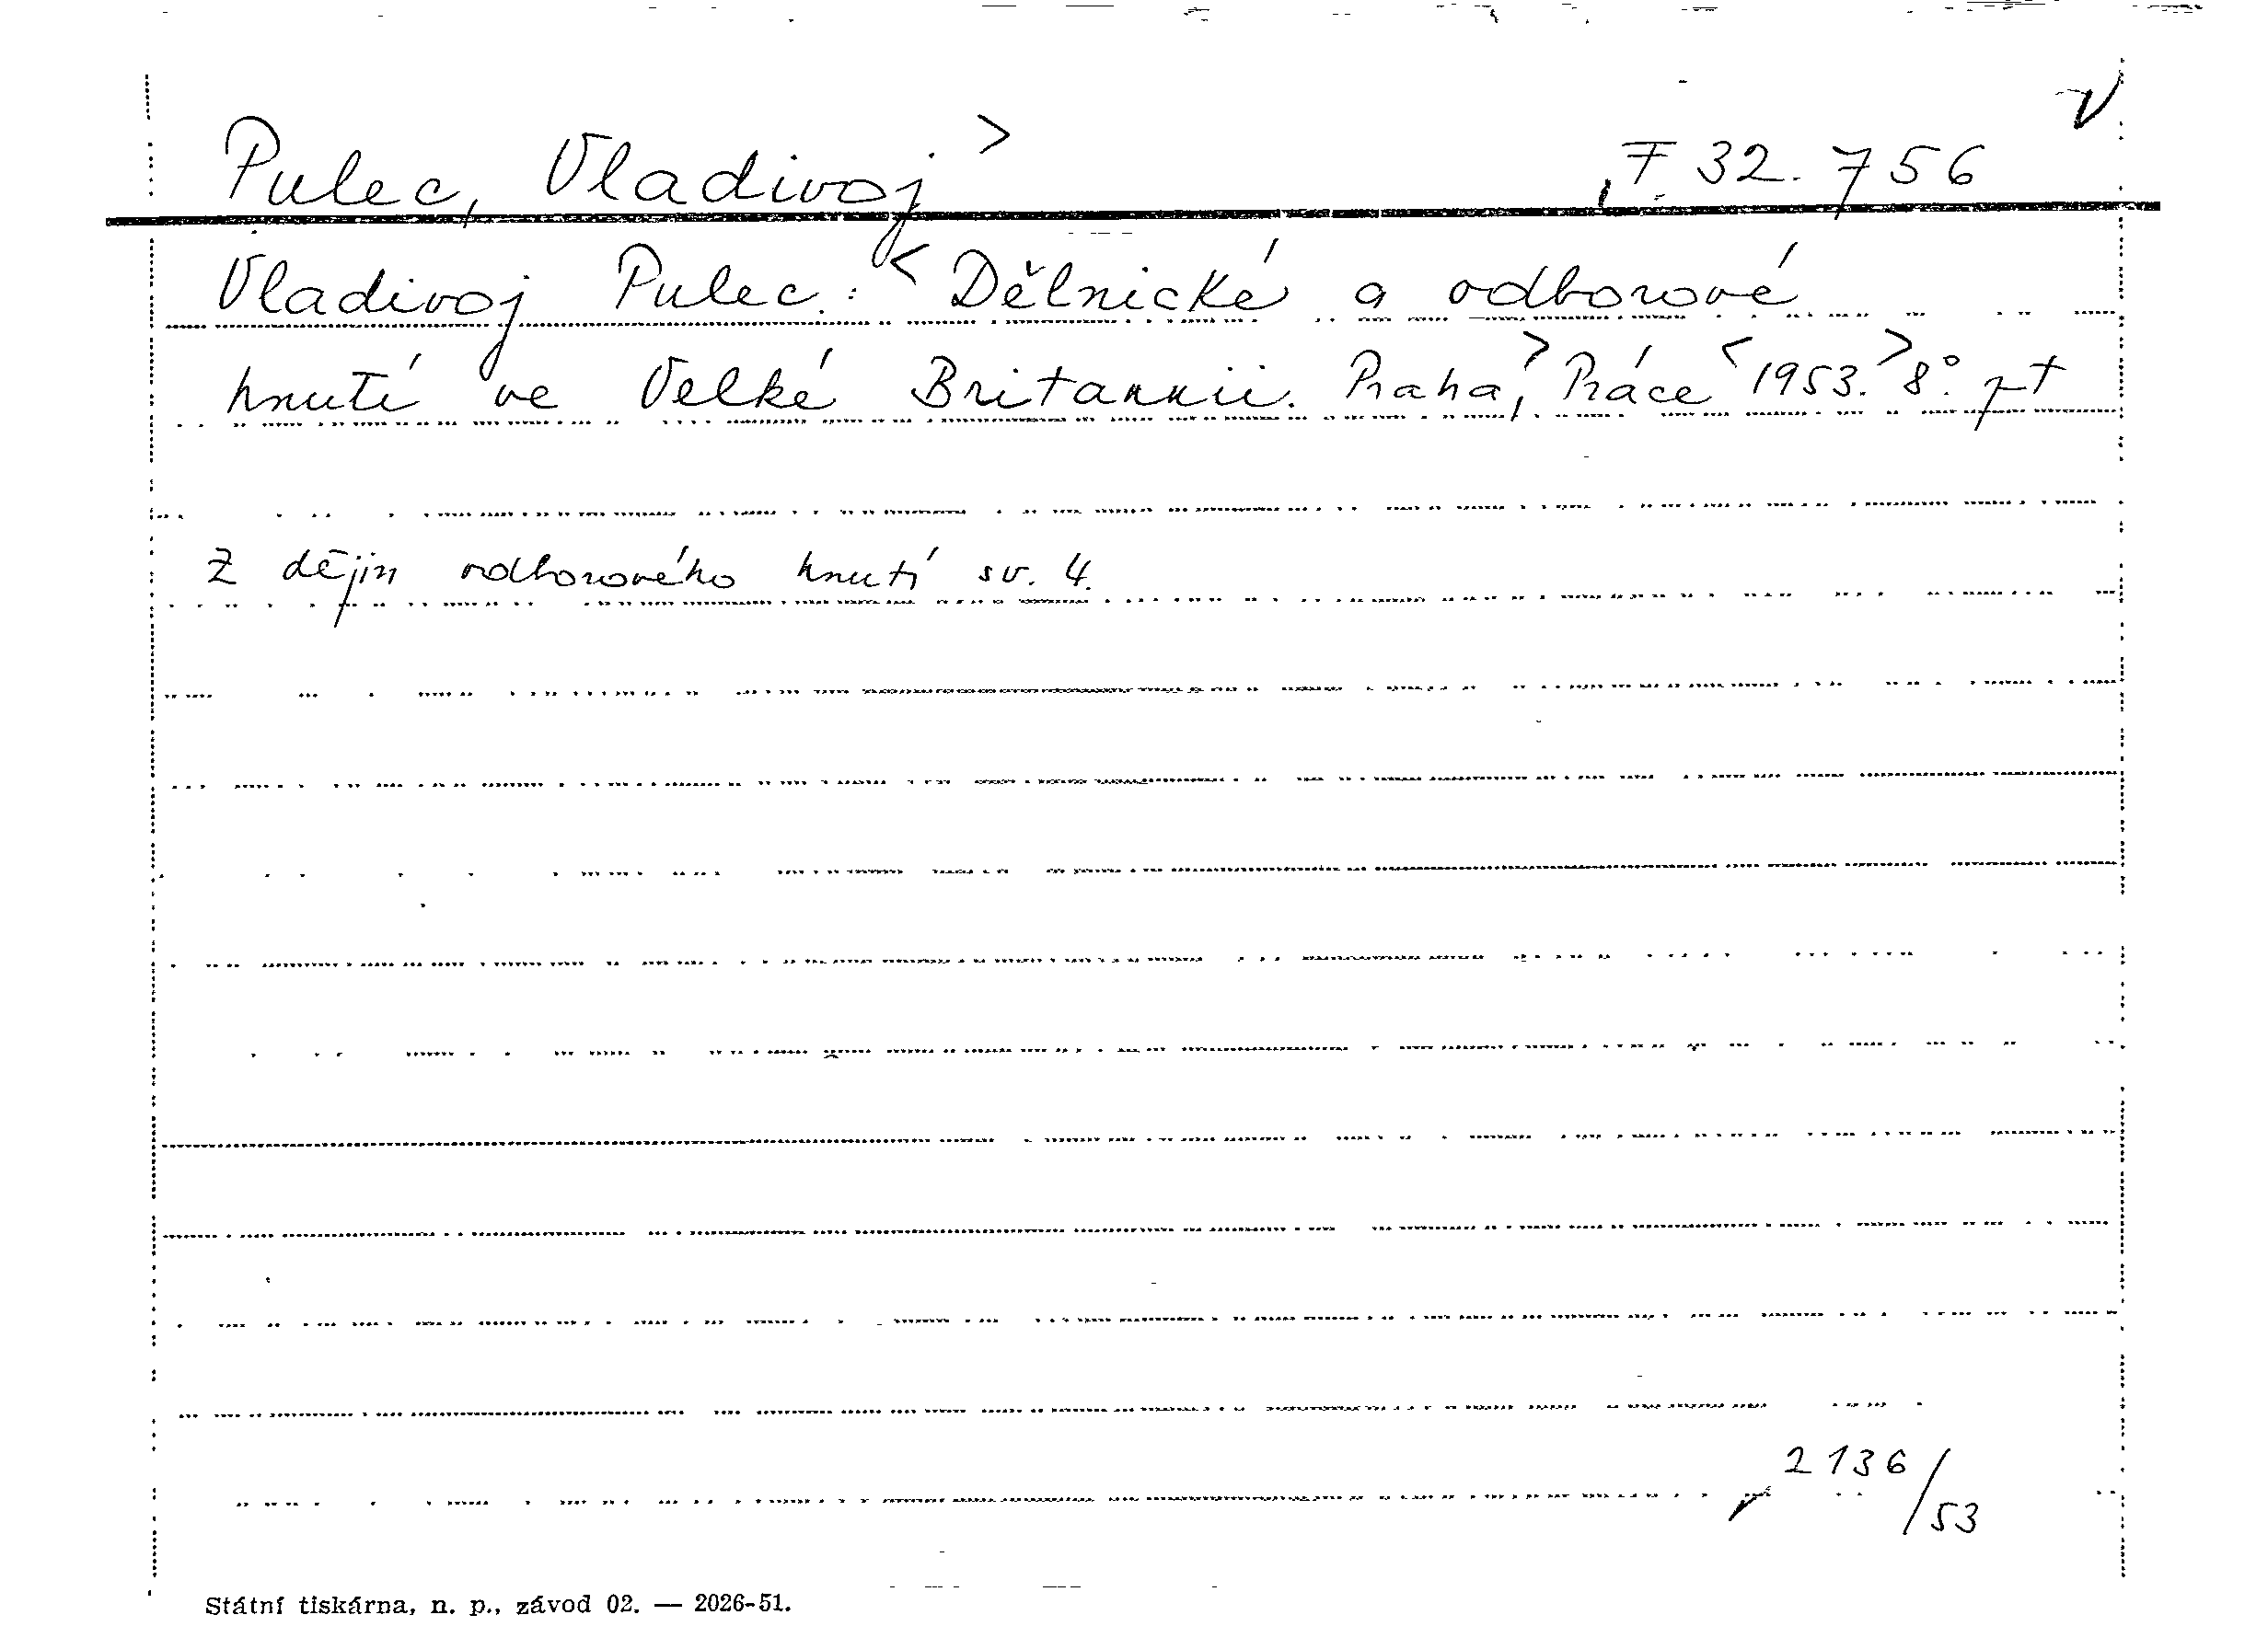 V
Pulec, Vladivoj > F 32.756
Vladivoj Pulec: < Dělnické a odborové
hnutí ve Velké Britannii. Praha, > Práce < 1953. > 8°.
Z dějin odborového hnutí sv. 4.
2136/53
Státní tiskárna, n. p., závod 02. — 2026-51.